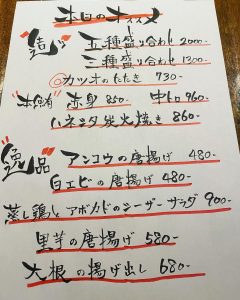 本日のオススメ
造り 五種盛り合わせ 2000-
三種盛り合わせ 1300-
◎カツオのたたき 730-
本鮪 赤身 850- 中トロ 960-
ハネシタ炭火焼き 860-
逸品 アンコウの唐揚げ 480-
白エビの唐揚げ 480-
蒸し鶏とアボカドのシーザーサラダ 900-
里芋の唐揚げ 580-
大根の揚げ出し 680-